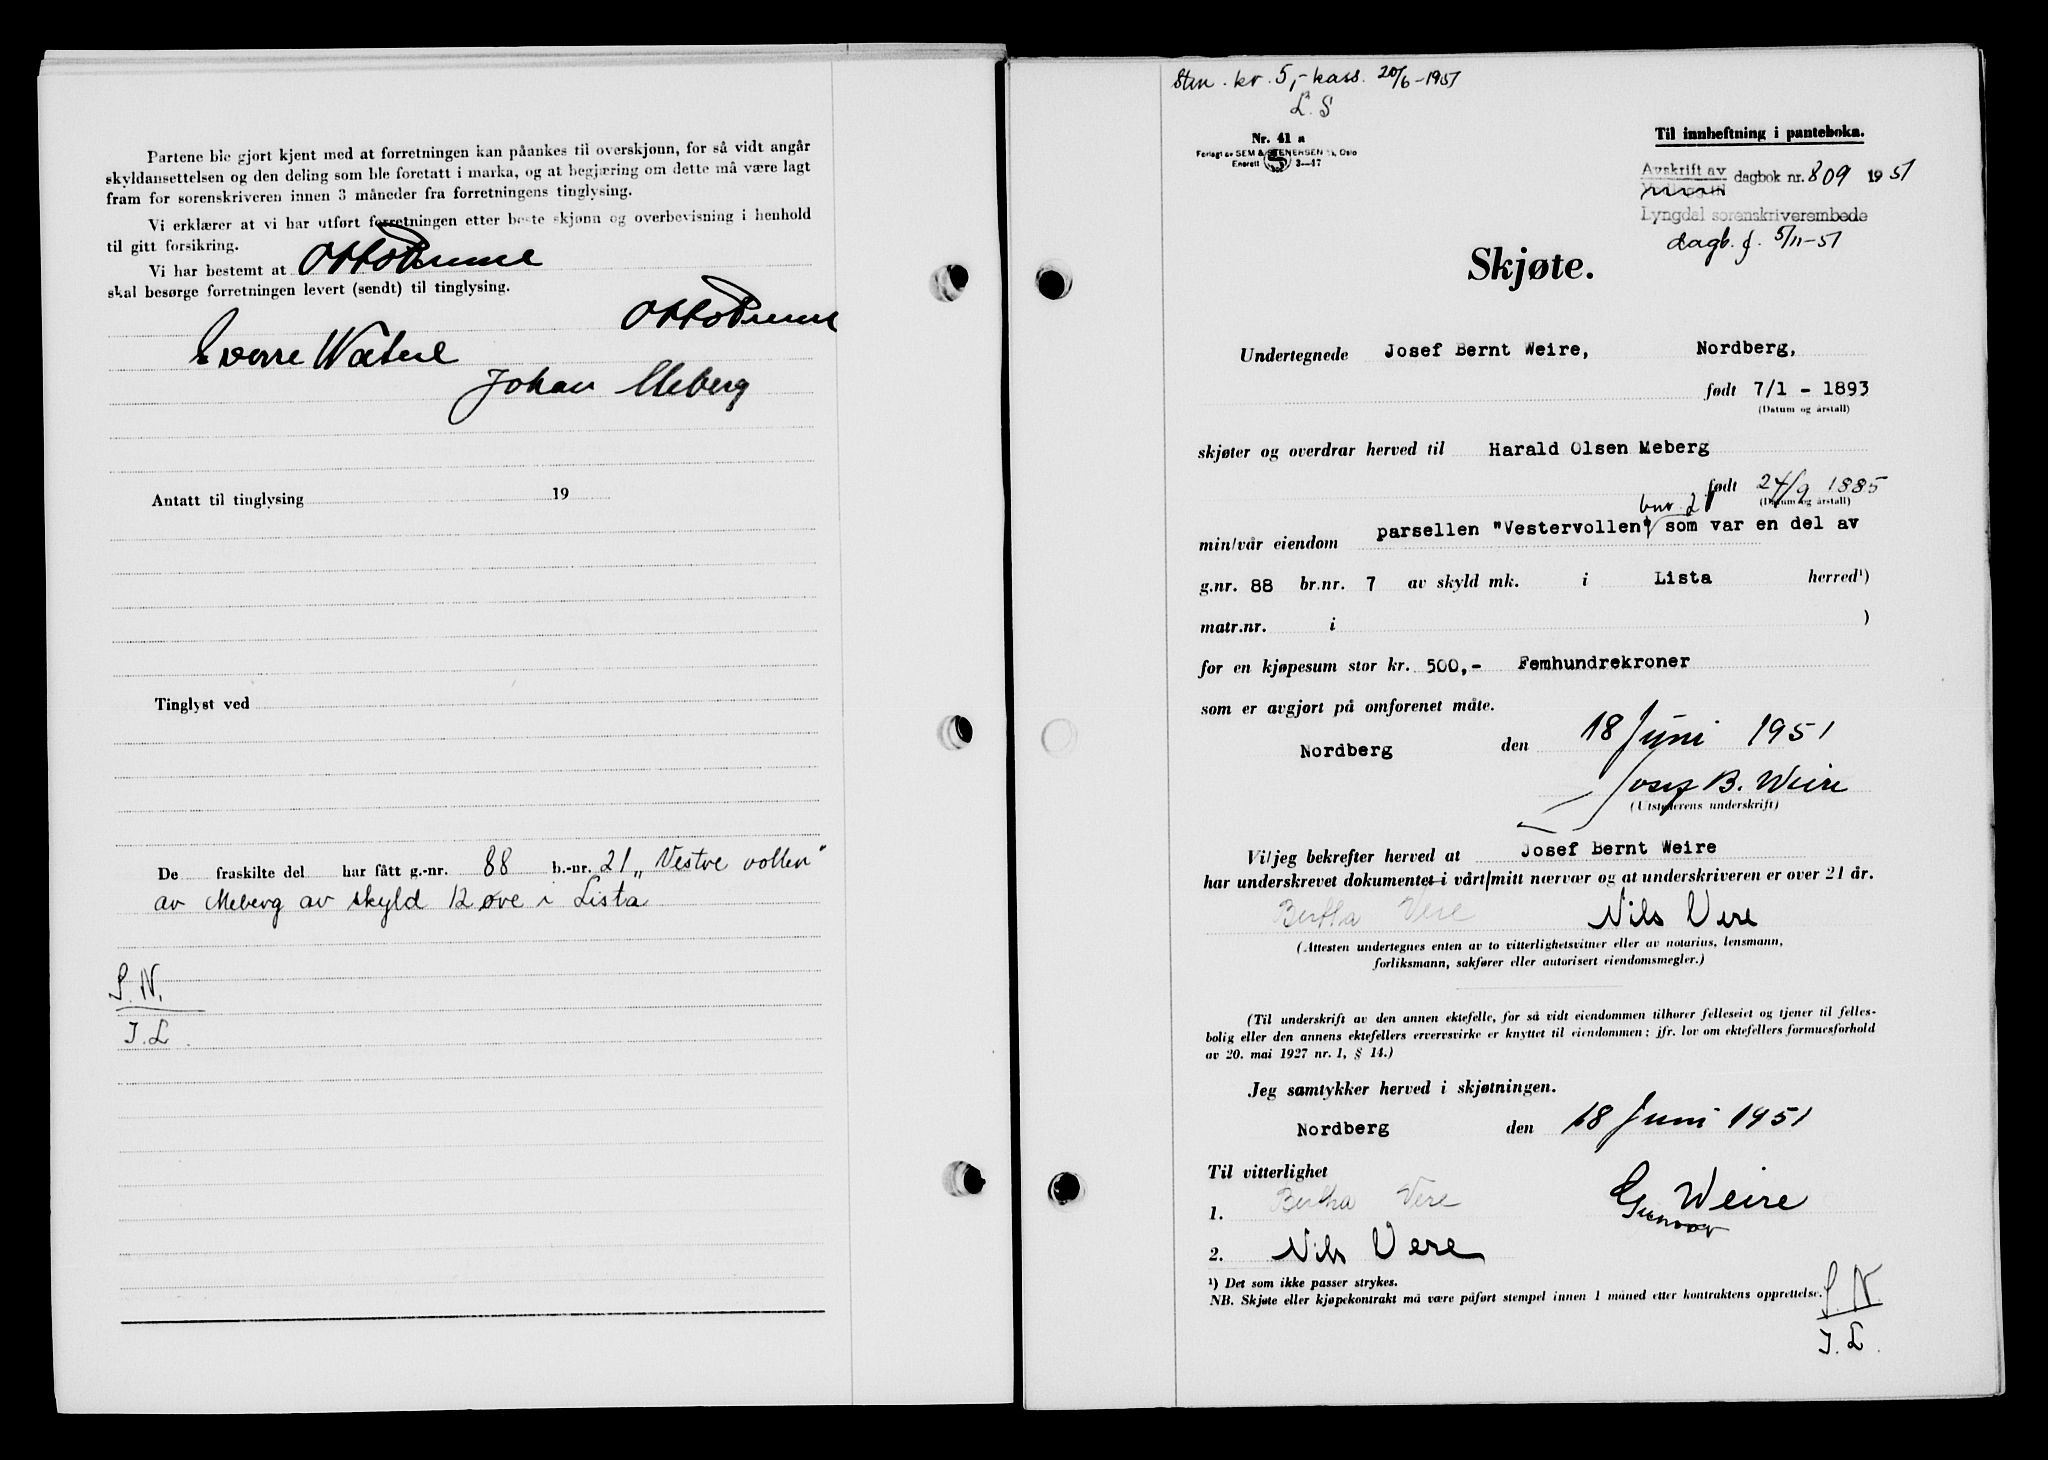 Partene ble gjort kjent med at forretningen kan påankes til overskjønn, for så vidt angår
skyldansettelsen og den deling som ble foretatt i marka, og at begjæring om dette må være lagt
fram for sorenskriveren innen 3 måneder fra forretningens tinglysing.
Vi erklærer at vi har utført forretningen etter beste skjønn og overbevisning i henhold
til gitt forsikring.
Vi har bestemt at Otto
skal besørge forretningen levert (sendt) til tinglysing.
Otto
Sverre
Johan Meberg
Antatt til tinglysing 19
Tinglyst ved
De fraskilte del har fått g.-nr. 88 b.-nr. 21 „Vestre vollen"
av Meberg av skyld 12 øre i Lista
S. N.
J. L.
Stm. kr. 5,- kass. 20/6-1951
L. S
Nr. 41 a
Forlagt av SEM & STENERSEN A/S, Oslo
Enerett S 3—47
Til innheftning i panteboka.
Avskrift av dagbok nr. 809 1951
Lyngdal sorenskriverembede
dagb. f. 5/11-51
Skjøte.
Undertegnede Josef Bernt Weire, Nordberg,
født 7/1 - 1893
(Datum og årstall)
skjøter og overdrar herved til Harald Olsen Meberg
født 24/9 1885
(Datum og årstall)
bnr. 21
min/vår eiendom parsellen "Vestervollen" som var en del av
g.nr. 88 br.nr. 7 av skyld mk. i Lista herred¹)
matr.nr. i )
for en kjøpesum stor kr. 500,- Femhundrekroner
som er avgjort på omforenet måte.
Nordberg den 18 Juni 1951
Josef B. Weire
(Utstederens underskrift)
Vi/jeg bekrefter herved at Josef Bernt Weire
har underskrevet dokumentet i vårt/mitt nærvær og at underskriveren er over 21 år.
Bertha Vere Nils Vere
(Attesten undertegnes enten av to vitterlighetsvitner eller av notarius, lensmann,
forliksmann, sakfører eller autorisert eiendomsmegler.)
(Til underskrift av den annen ektefelle, for så vidt eiendommen tilhører felleseiet og tjener til felles-
bolig eller den annens ektefellers ervervsvirke er knyttet til eiendommen; jfr. lov om ektefellers formuesforhold
av 20. mai 1927 nr. 1, § 14.)
Jeg samtykker herved i skjøtningen.
Nordberg den 18 Juni 1951
Til vitterlighet
1. Bertha Vere G Weire
Gunvor
2. Nils Vere
¹) Det som ikke passer strykes.
NB. Skjøte eller kjøpekontrakt må være påført stempel innen 1 måned etter kontraktens opprettelse.
S. N.
J. L.